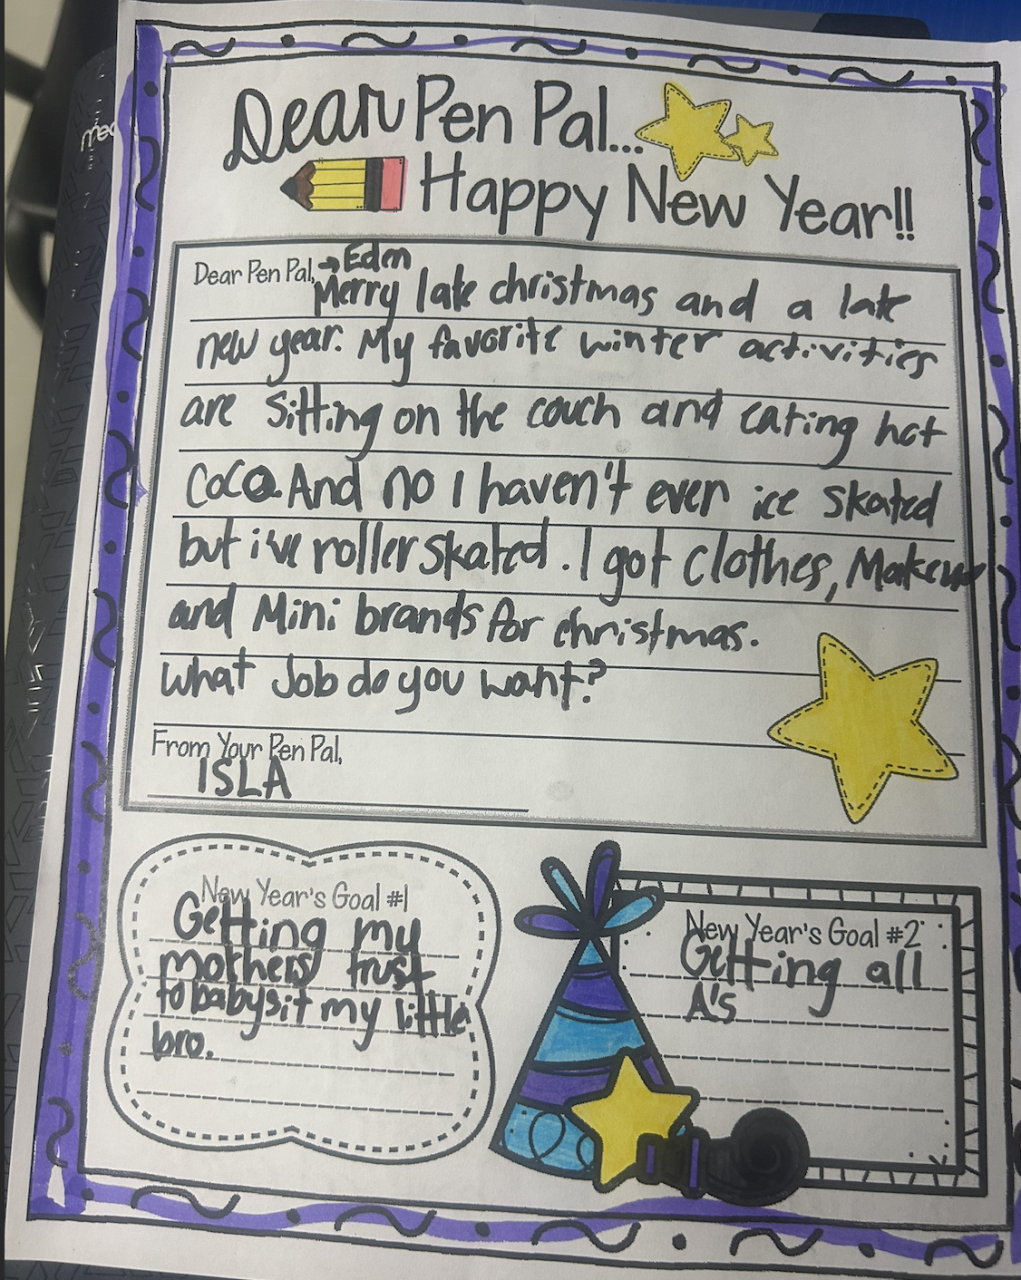 Dear Pen Pal...
Happy New Year!!
Dear Pen Pal, → Edm
Merry late christmas and a late
new year. My favorite winter activities
are sitting on the couch and eating hot
coco. And no I haven't ever ice skated
but i've roller skated. I got clothes, Makeup
and Mini brands for christmas.
What Job do you want?
From Your Pen Pal,
ISLA
New Year's Goal #1
Getting my
mothers trust
to babysit my little
bro.
New Year's Goal #2
Getting all
A's